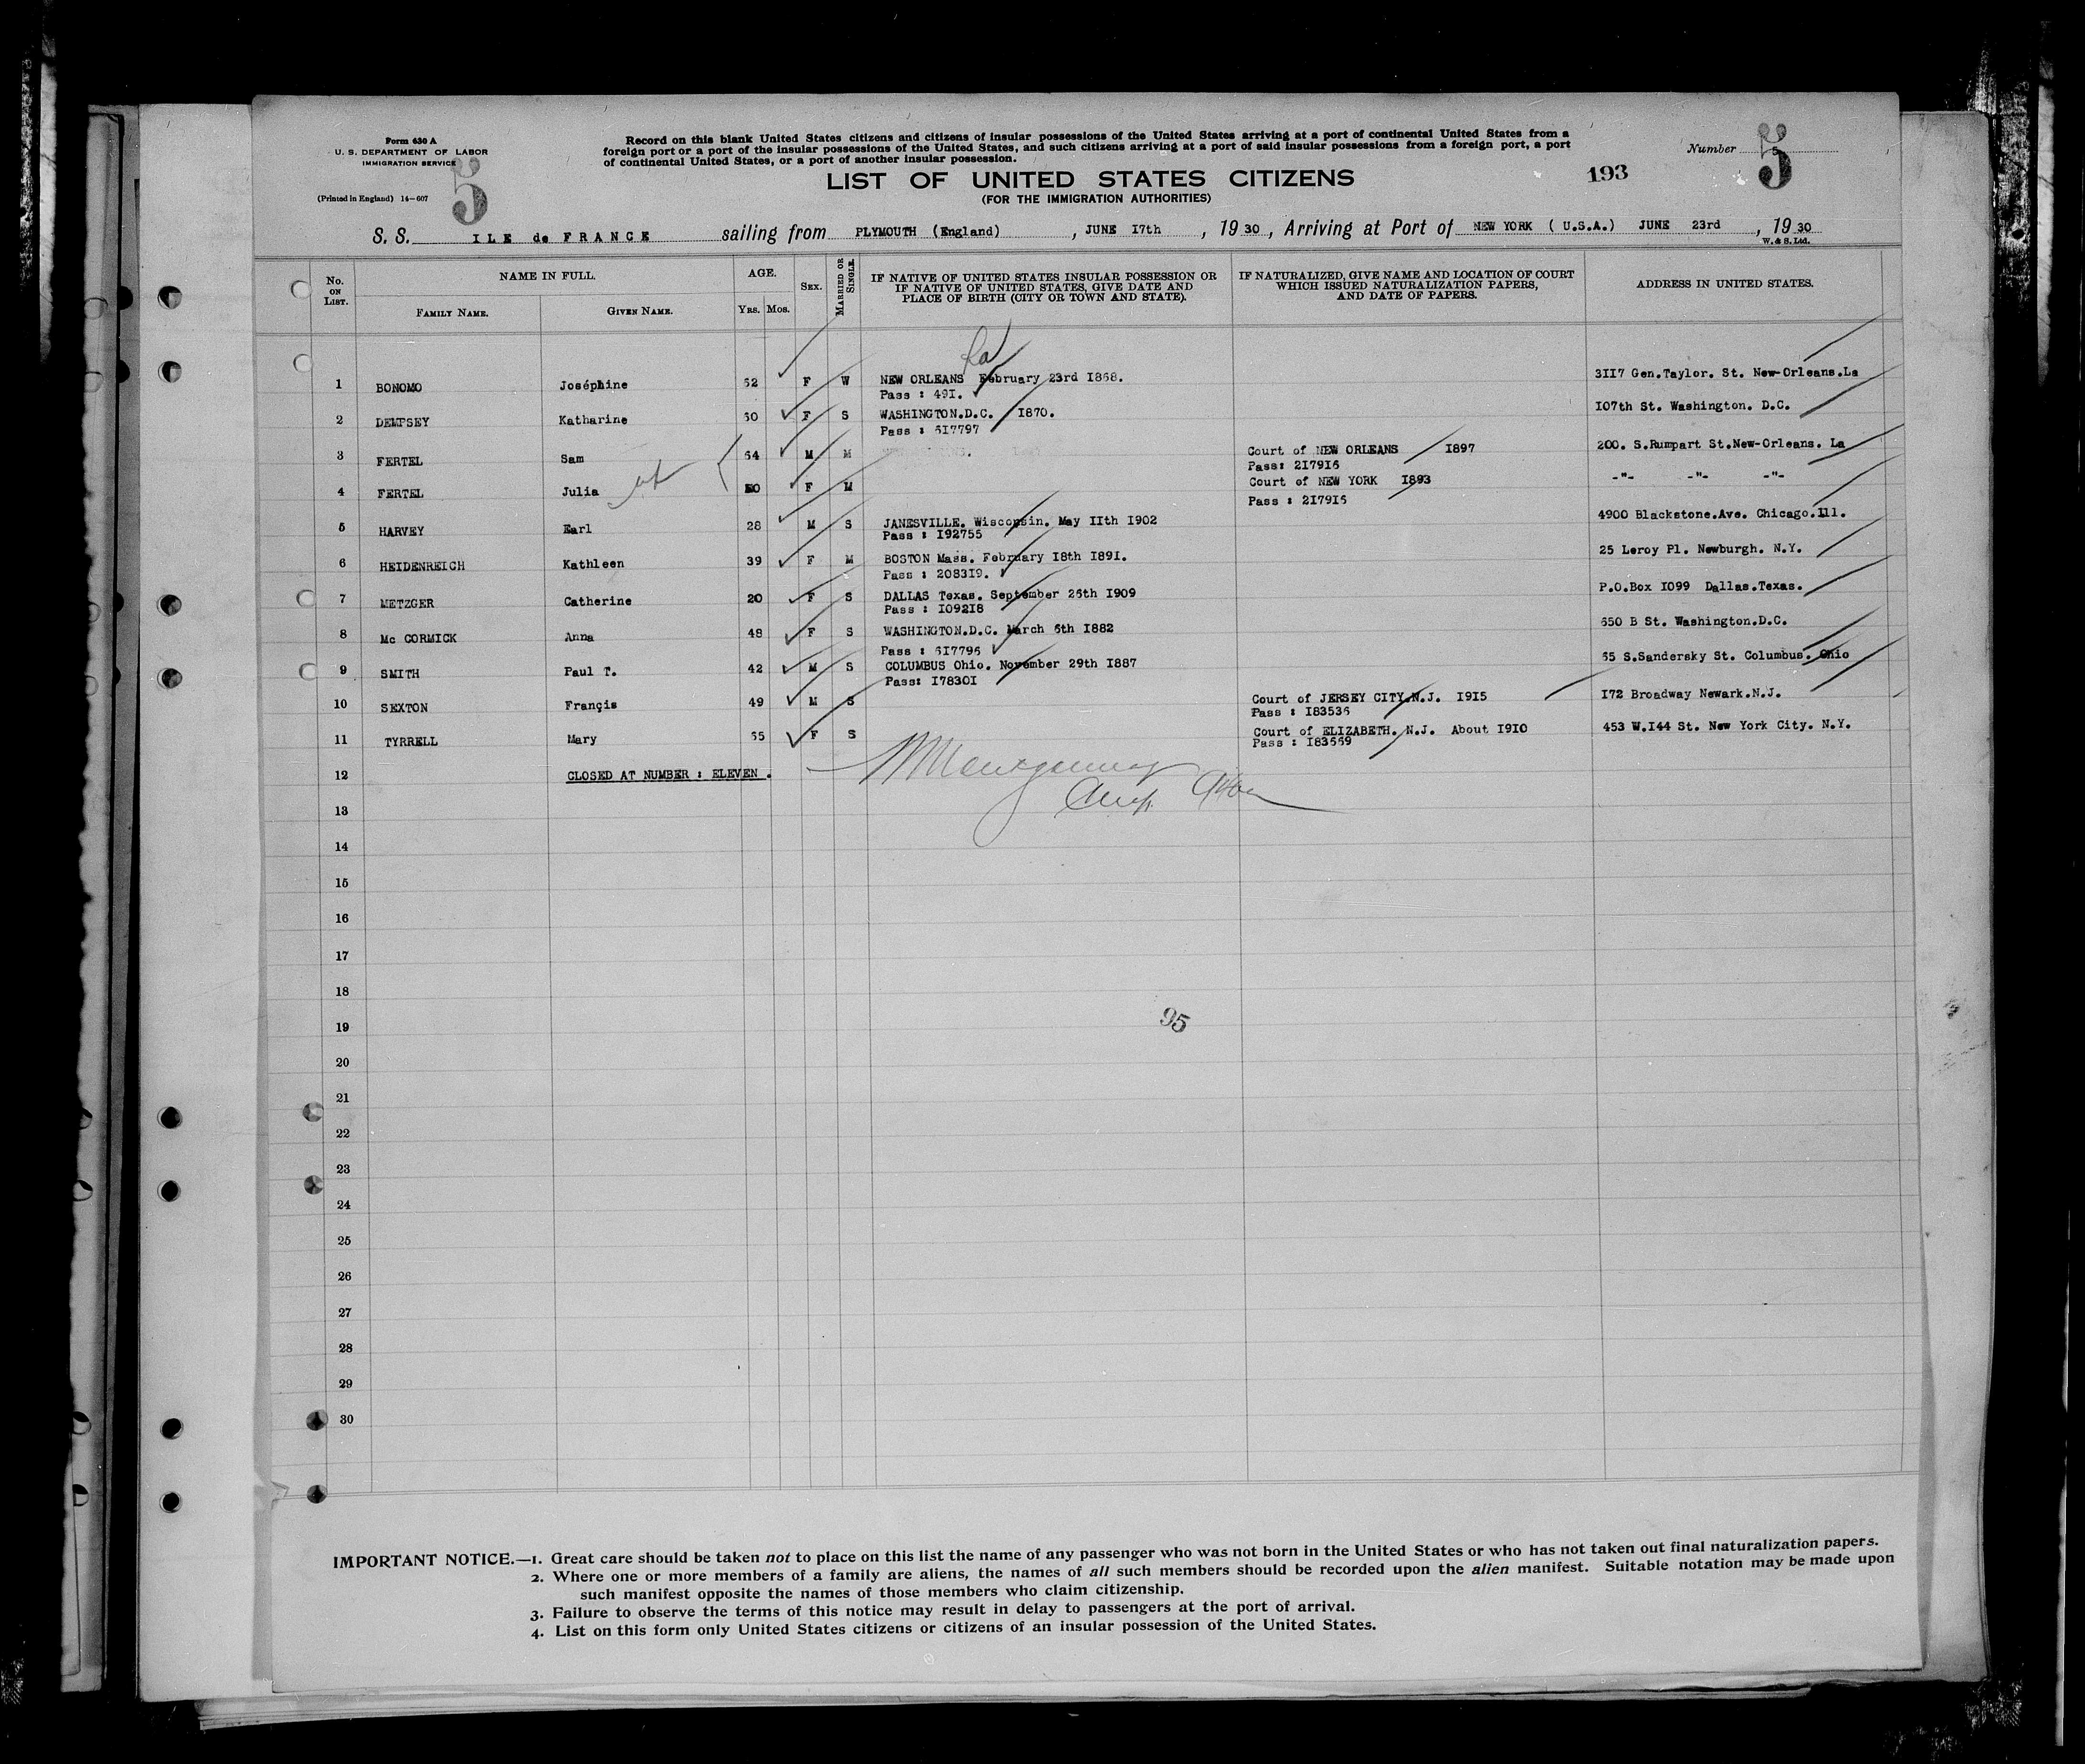 Form 630 A
U. S. DEPARTMENT OF LABOR
IMMIGRATION SERVICE
(Printed in England) 14-607
5
Record on this blank United States citizens and citizens of insular possessions of the United States arriving at a port of continental United States from a
foreign port or a port of the insular possessions of the United States, and such citizens arriving at a port of said insular possessions from a foreign port, a port
of continental United States, or a port of another insular possession.
LIST OF UNITED STATES CITIZENS
(FOR THE IMMIGRATION AUTHORITIES)
193
Number 5
5
S. S. ILE de FRANCE sailing from PLYMOUTH (England), JUNE I7th, 1930, Arriving at Port of NEW YORK ( U.S.A.) JUNE 23rd, 1930
W. & S. Ltd.
No. ON LIST. NAME IN FULL. AGE. SEX. MARRIED OR SINGLE. IF NATIVE OF UNITED STATES INSULAR POSSESSION OR IF NATIVE OF UNITED STATES, GIVE DATE AND PLACE OF BIRTH (CITY OR TOWN AND STATE). IF NATURALIZED, GIVE NAME AND LOCATION OF COURT WHICH ISSUED NATURALIZATION PAPERS, AND DATE OF PAPERS. ADDRESS IN UNITED STATES.
FAMILY NAME. GIVEN NAME. YRS. MOS.
La
1 BONOMO Joséphine 62 F W NEW ORLEANS February 23rd I868. 3II7 Gen.Taylor. St. New-Orleans.La
Pass : 49I.
2 DEMPSEY Katharine 60 F S WASHINGTON.D.C. I870. I07th St. Washington. D.C.
Pass : 6I7797
3 FERTEL Sam 54 M M Court of NEW ORLEANS I897 200. S.Rumpart St.New-Orleans. La
Pass: 2I79I6
4 FERTEL Julia 50 F M Court of NEW YORK I893 -"- -"- -"-
Pass : 2I79I6
5 HARVEY Earl 28 M S JANESVILLE. Wisconsin. May IIth I902 4900 Blackstone.Ave. Chicago.Ill.
Pass : I92755
6 HEIDENREICH Kathleen 39 F M BOSTON Mass. February I8th I89I. 25 Leroy Pl. Newburgh. N.Y.
Pass : 2083I9.
7 METZGER Catherine 20 F S DALLAS Texas. September 26th I909 P.O.Box I099 Dallas.Texas.
Pass : I092I8
8 Mc CORMICK Anna 48 F S WASHINGTON.D.C. March 6th I882 650 B St. Washington.D.C.
Pass : 6I7796
9 SMITH Paul T. 42 M S COLUMBUS Ohio. November 29th I887 65 S.Sandersky St. Columbus. Ohio
Pass: I7830I
10 SEXTON Françis 49 M S Court of JERSEY CITY.N.J. I9I5 I72 Broadway Newark.N.J.
Pass : I83536
11 TYRRELL Mary 55 F S Court of ELIZABETH. N.J. About I9I0 453 W.I44 St. New York City. N.Y.
Pass : I83569
12 CLOSED AT NUMBER : ELEVEN .
13
14
15
16
17
18
19
95
20
21
22
23
24
25
26
27
28
29
30
IMPORTANT NOTICE.—1. Great care should be taken not to place on this list the name of any passenger who was not born in the United States or who has not taken out final naturalization papers.
2. Where one or more members of a family are aliens, the names of all such members should be recorded upon the alien manifest. Suitable notation may be made upon
such manifest opposite the names of those members who claim citizenship.
3. Failure to observe the terms of this notice may result in delay to passengers at the port of arrival.
4. List on this form only United States citizens or citizens of an insular possession of the United States.